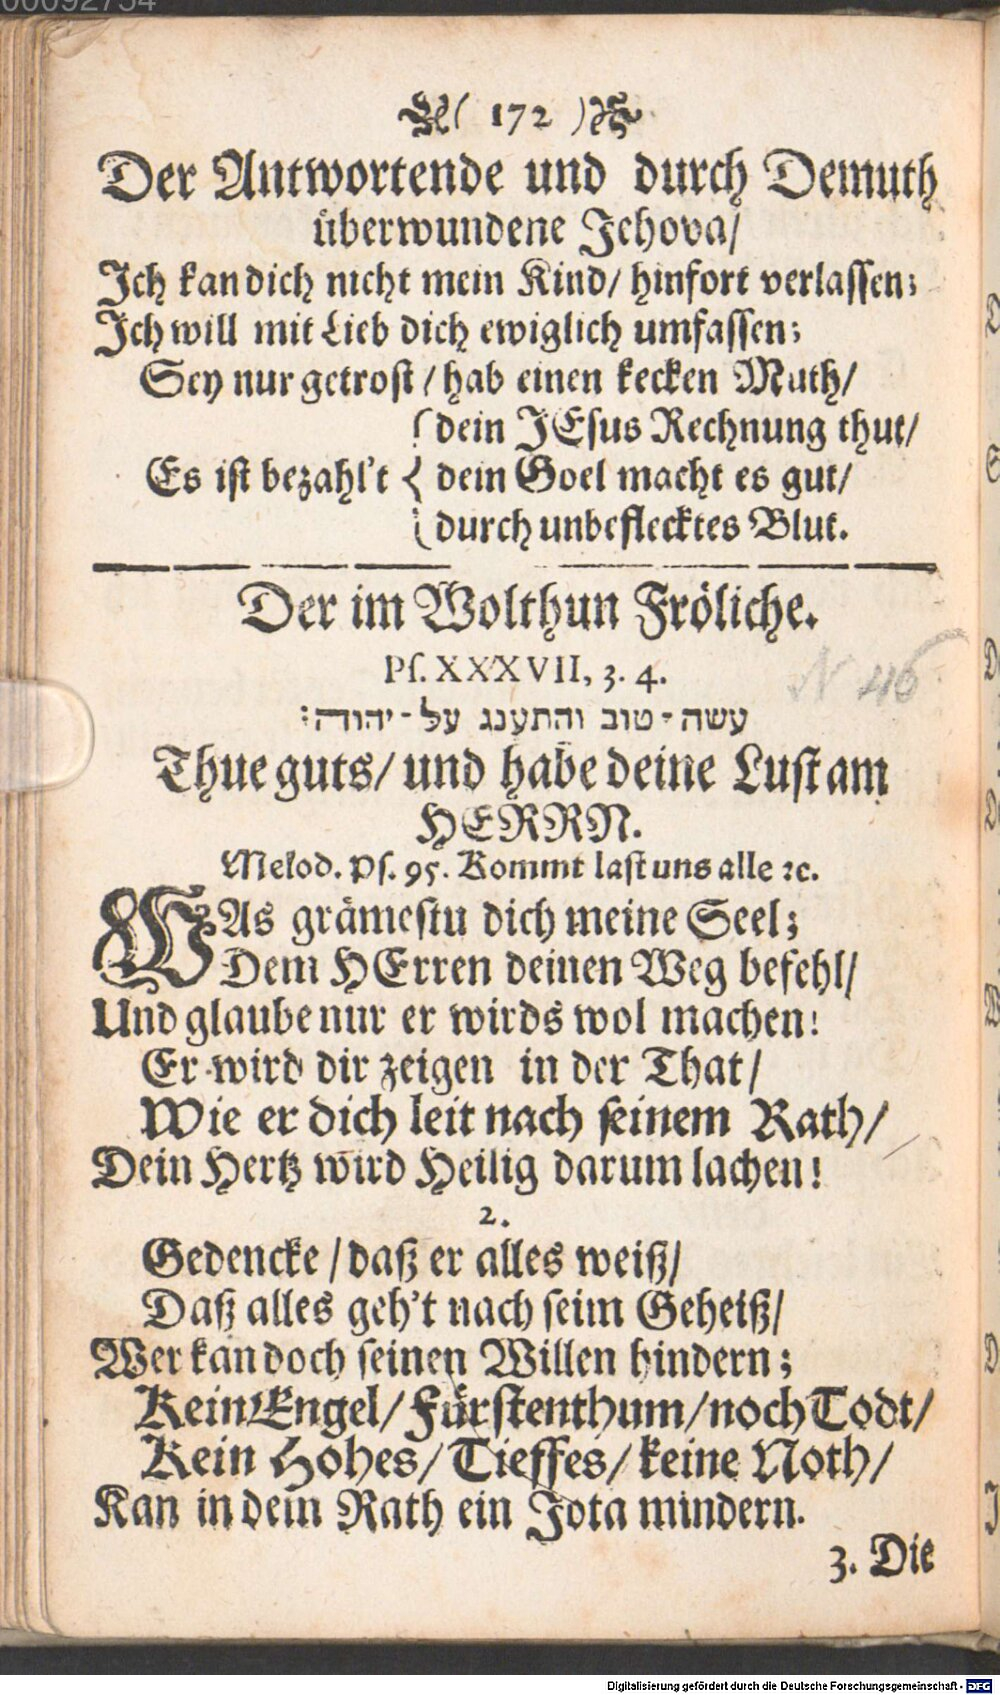 00092754
( 172 )
Der Antwortende und durch Demuth
überwundene Jehova/
Ich kan dich nicht mein Kind/ hinfort verlassen;
Ich will mit Lieb dich ewiglich umfassen;
Sey nur getrost/ hab einen kecken Muth/
dein JEsus Rechnung thut/
Es ist bezahl't { dein Goel macht es gut/
durch unbeflecktes Blut.
Der im Wolthun Fröliche.
Ps. XXXVII, 3. 4.
עשה-טוב והתענג על-יהוה:
Thue guts/ und habe deine Lust am
HERRN.
Melod. Ps. 95. Kommt last uns alle ꝛc.
WAs grämestu dich meine Seel;
Dem HErren deinen Weg befehl/
Und glaube nur er wirds wol machen!
Er wird dir zeigen in der That/
Wie er dich leit nach seinem Rath/
Dein Hertz wird Heilig darum lachen!
2.
Gedencke/ daß er alles weiß/
Daß alles geh't nach seim Geheiß/
Wer kan doch seinen Willen hindern;
Kein Engel/ Fürstenthum/ noch Todt/
Kein Hohes/ Tieffes/ keine Noth/
Kan in dem Rath ein Jota mindern.
3. Die
N 46
Digitalisierung gefördert durch die Deutsche Forschungsgemeinschaft - DFG